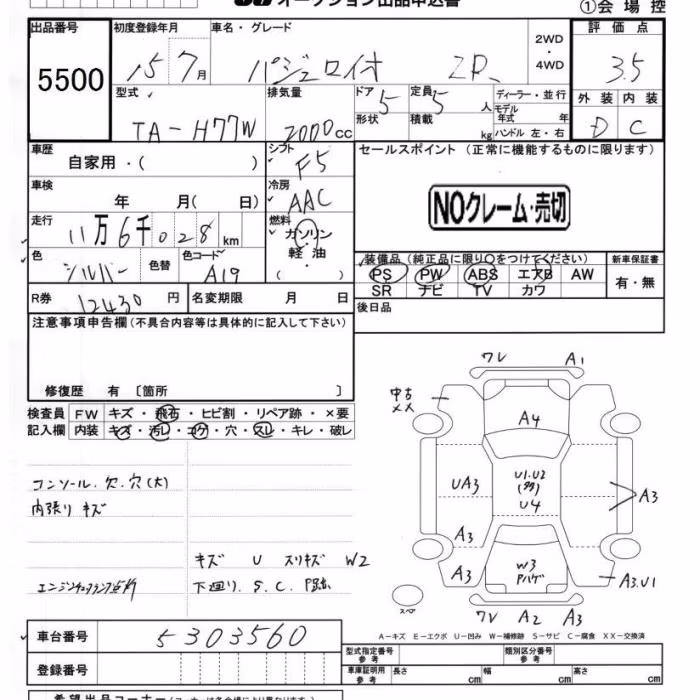 オークション出品申込書 ①会場控
出品番号 初度登録年月 車名・グレード 2WD・4WD 評価点
5500 15 7月 パジェロイオ ZR 3.5
型式 排気量 ドア 5 定員 5人 ディーラー・並行 外装 内装
TA-H77W 2000cc 形状 積載 kg モデル年式 年 D C
ハンドル 左・右
車歴 シフト セールスポイント(正常に機能するものに限ります)
自家用・( ) F5
車検 冷房
年 月( 日) AAC NOクレーム・売切
走行 燃料
11万6千028km ガソリン
色 カラーコード 軽油 装備品(純正品に限り○をつけてください) 新車保証書
シルバー 色替 A19 ( ) PS PW ABS エアB AW 有・無
SR ナビ TV カワ
R券 12430円 名変期限 月 日 後日品
注意事項申告欄(不具合内容等は具体的に記入して下さい)
修復歴 有 〔箇所 〕
検査員 FW キズ・飛石・ヒビ割・リペア跡・×要
記入欄 内装 キズ・汚レ・コゲ・穴・スレ・キレ・破レ
コンソール.欠.穴(大)
内張り キズ
キズ U スリキズ W2
エンジンチェックランプ点灯 下廻り.S.C.
ワレ A1
中古
メメ
A4
UA3 U1.U2 A3
(多)
U4
A3
A3 W3 A3.U1
Pハゲ
スペア ワレ A2 A3
A-キズ E-エクボ U-凹み W-補修跡 S-サビ C-腐食 XX-交換済
車台番号 5303560
型式指定番号 参考 類別区分番号 参考
登録番号 車庫証明用 参考 長さ cm 幅 cm 高さ cm